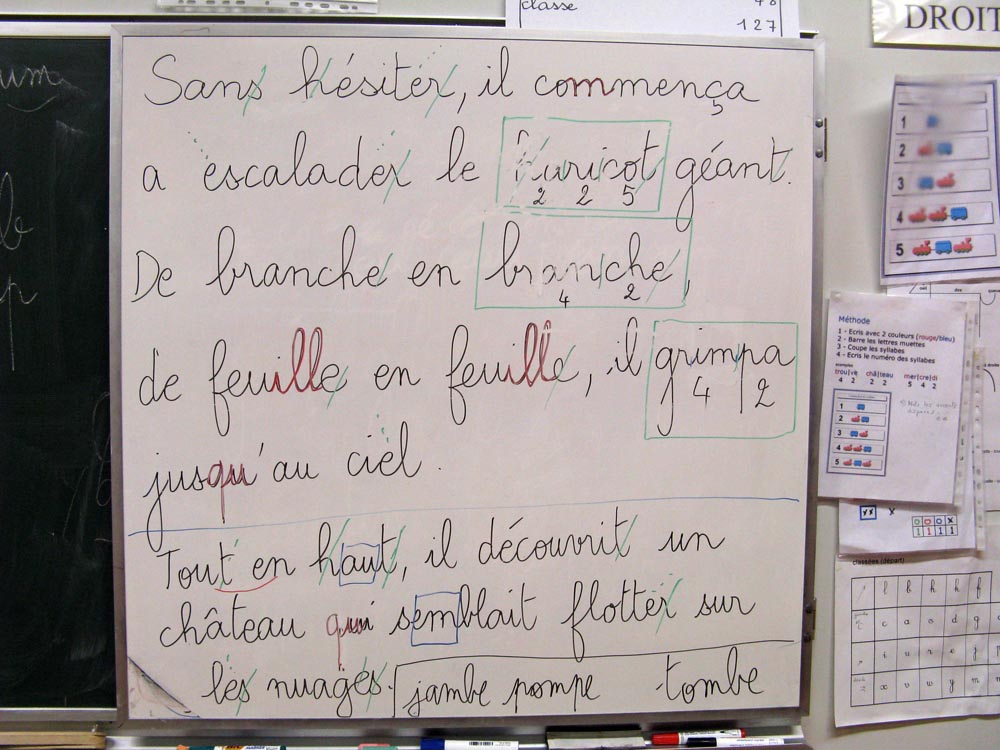 classe 48
127
DROIT
Sans hésiter, il commença
a escalader le haricot géant.
2 2 5
De branche en branche,
4 2
de feuille en feuille, il grimpa
4 2
jusqu'au ciel.
Tout en haut, il découvrit un
château qui semblait flotter sur
les nuages.
jambe pompe tombe
1
2
3
4
5
Méthode
1 - Ecris avec 2 couleurs (rouge/bleu)
2 - Barre les lettres muettes
3 - Coupe les syllabes
4 - Ecris le numéro des syllabes
exemples
trou|ve châ|teau mer|cre|di
4 2 2 2 5 4 2
1
2
3
4
5
classées (départ)
l b h k f
c a o d g
i u r e
x v w y